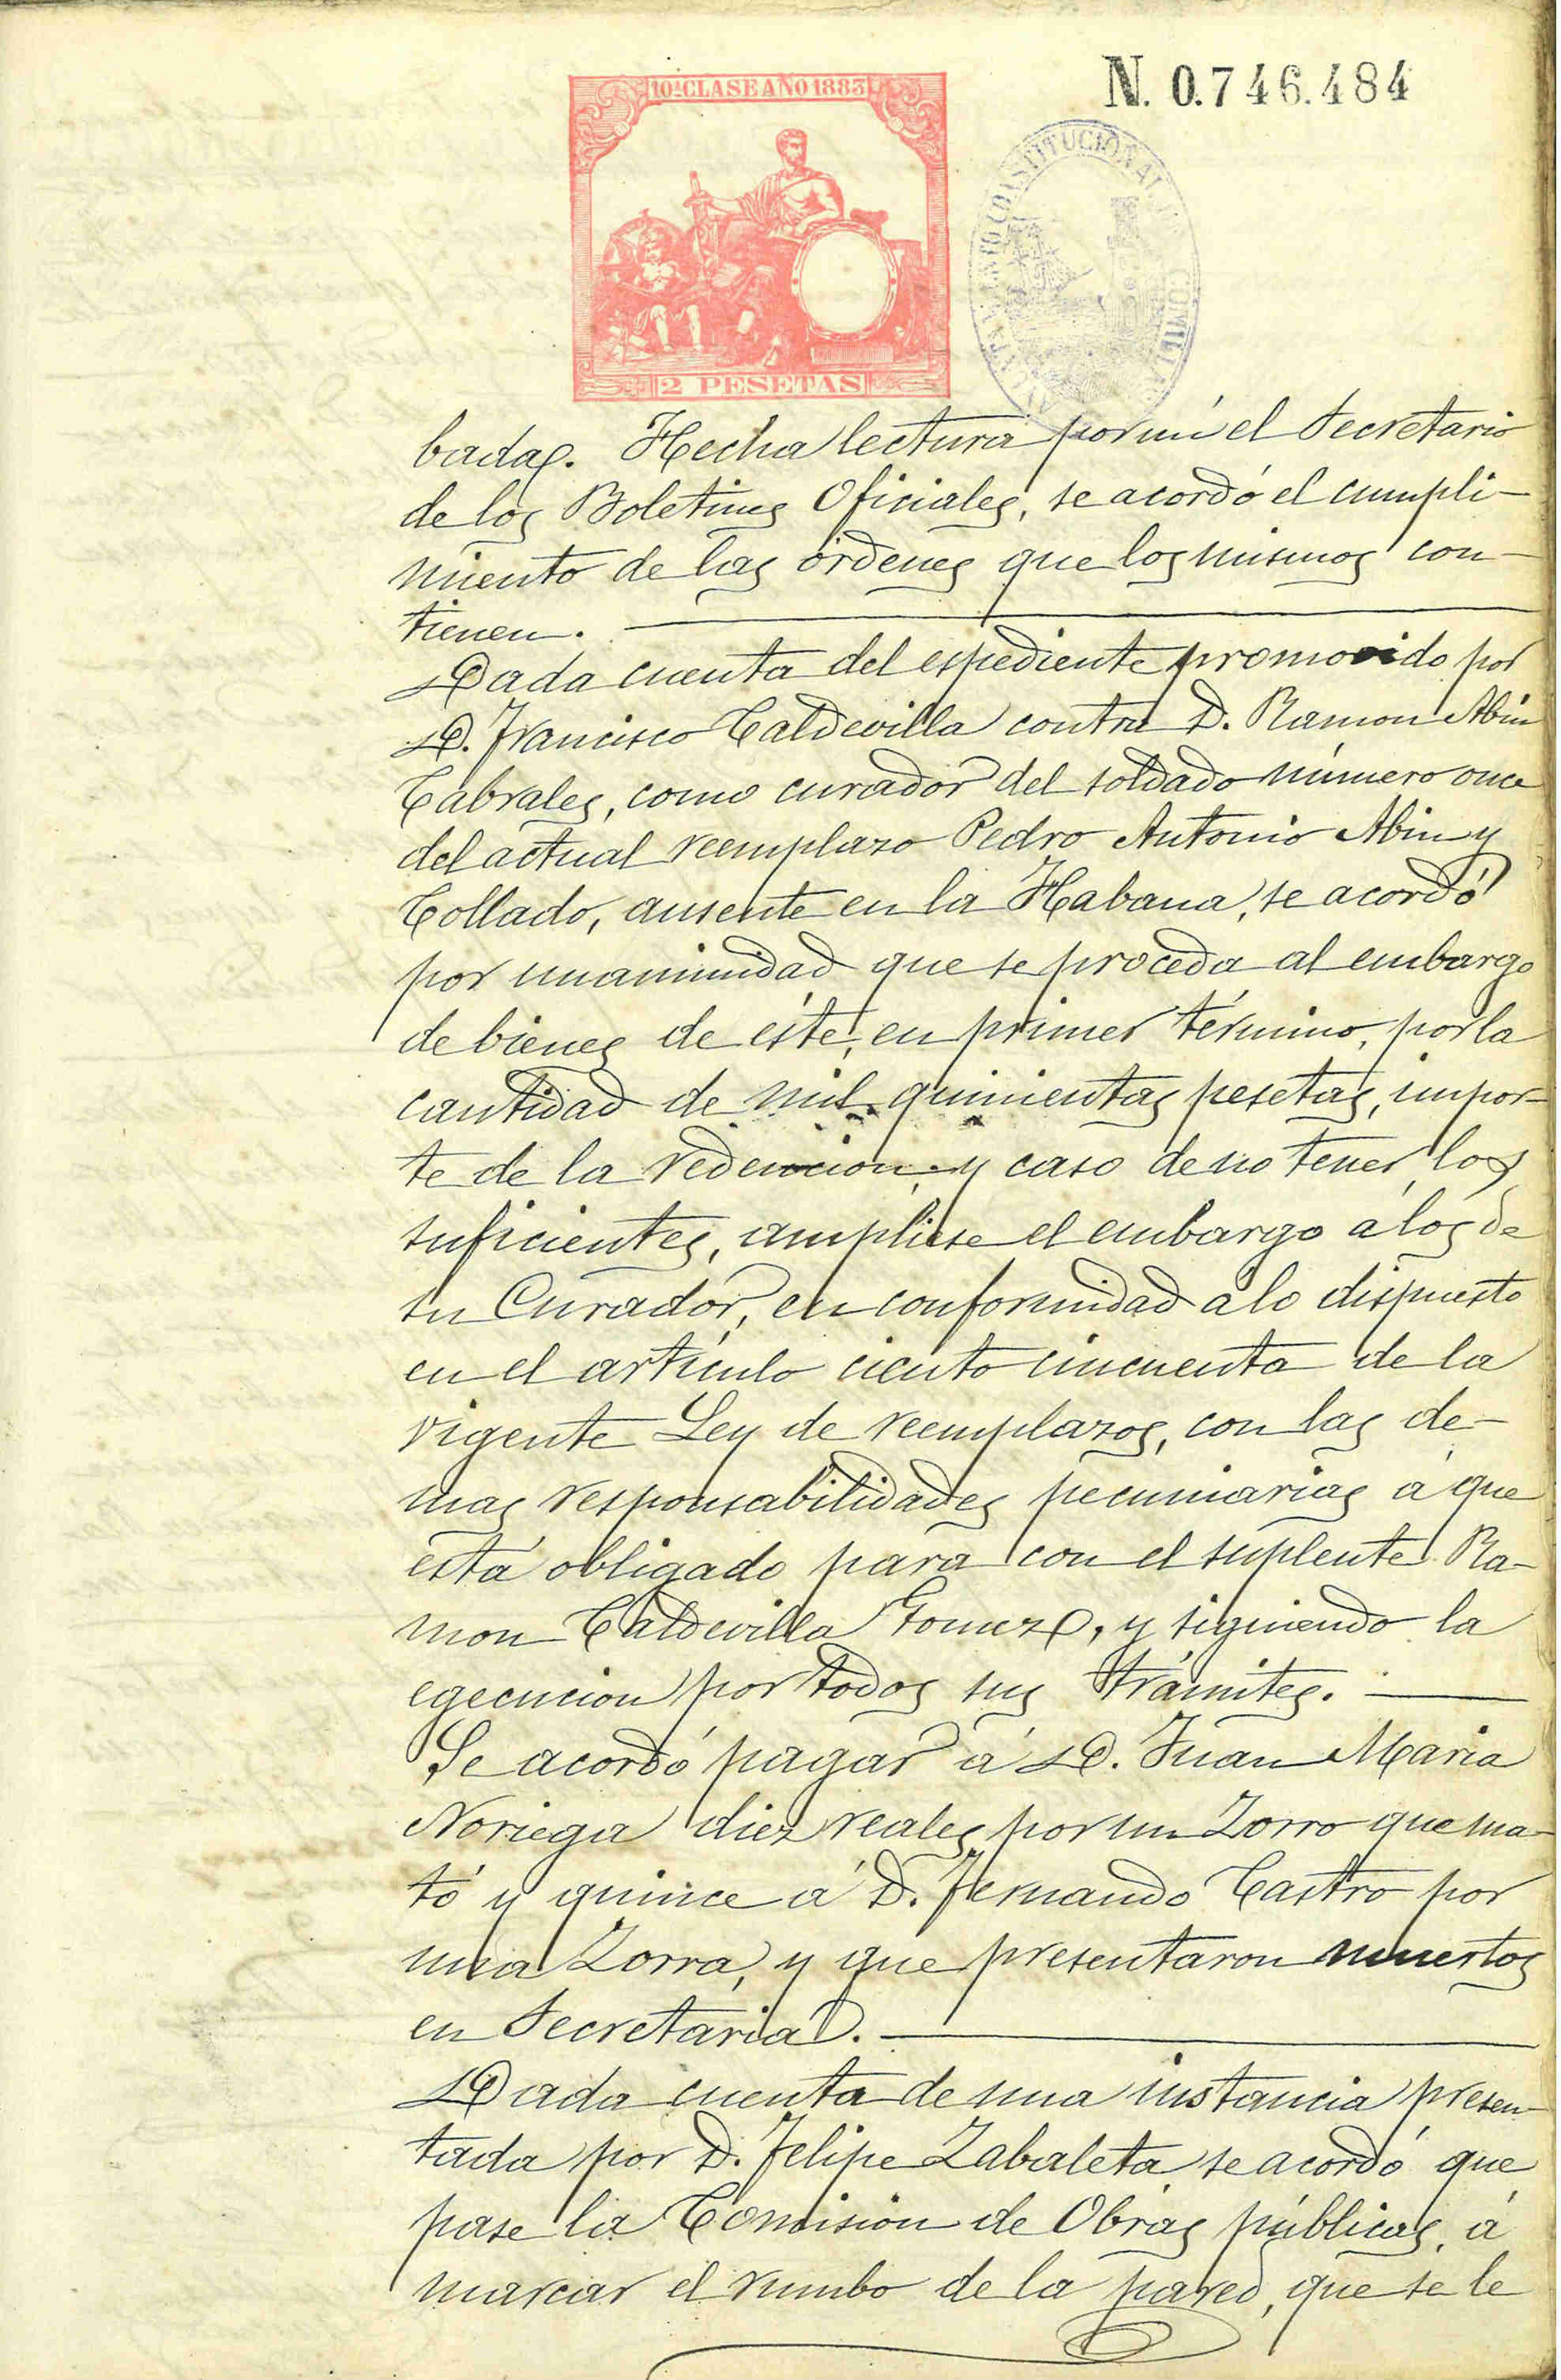 10ª CLASE AÑO 1883
N. 0.746.484
2 PESETAS
badas. Hecha lectura por mí el Secretario
de los Boletines Oficiales, se acordó el cumpli-
miento de las órdenes que los mismos con-
tienen.
Dada cuenta del espediente promovido por
D. Francisco Caldevilla contra D. Ramon Abin
Cabrales, como curador del soldado número once
del actual reemplazo Pedro Antonio Abin y
Collado, ausente en la Habana, se acordó
por unanimidad que se proceda al embargo
de bienes de éste, en primer término, por la
cantidad de mil quinientas pesetas, impor-
te de la redencion, y caso de no tener los
suficientes, ampliese el embargo á los de
su Curador, en conformidad á lo dispuesto
en el artículo ciento cincuenta de la
vigente Ley de reemplazos, con las de-
mas responsabilidades pecuniarias á que
está obligado para con el suplente Ra-
mon Caldevilla Gomez, y siguiendo la
egecucion por todos sus trámites.
Se acordó pagar á D. Juan Maria
Noriega diez reales por un Zorro que ma-
tó y quince á D. Fernando Castro por
una Zorra, y que presentaron muertos
en Secretaría.
Dada cuenta de una instancia presen-
tada por D. Felipe Zabaleta se acordó que
pase la Comisión de Obras públicas, á
marcar el rumbo de la pared, que se le